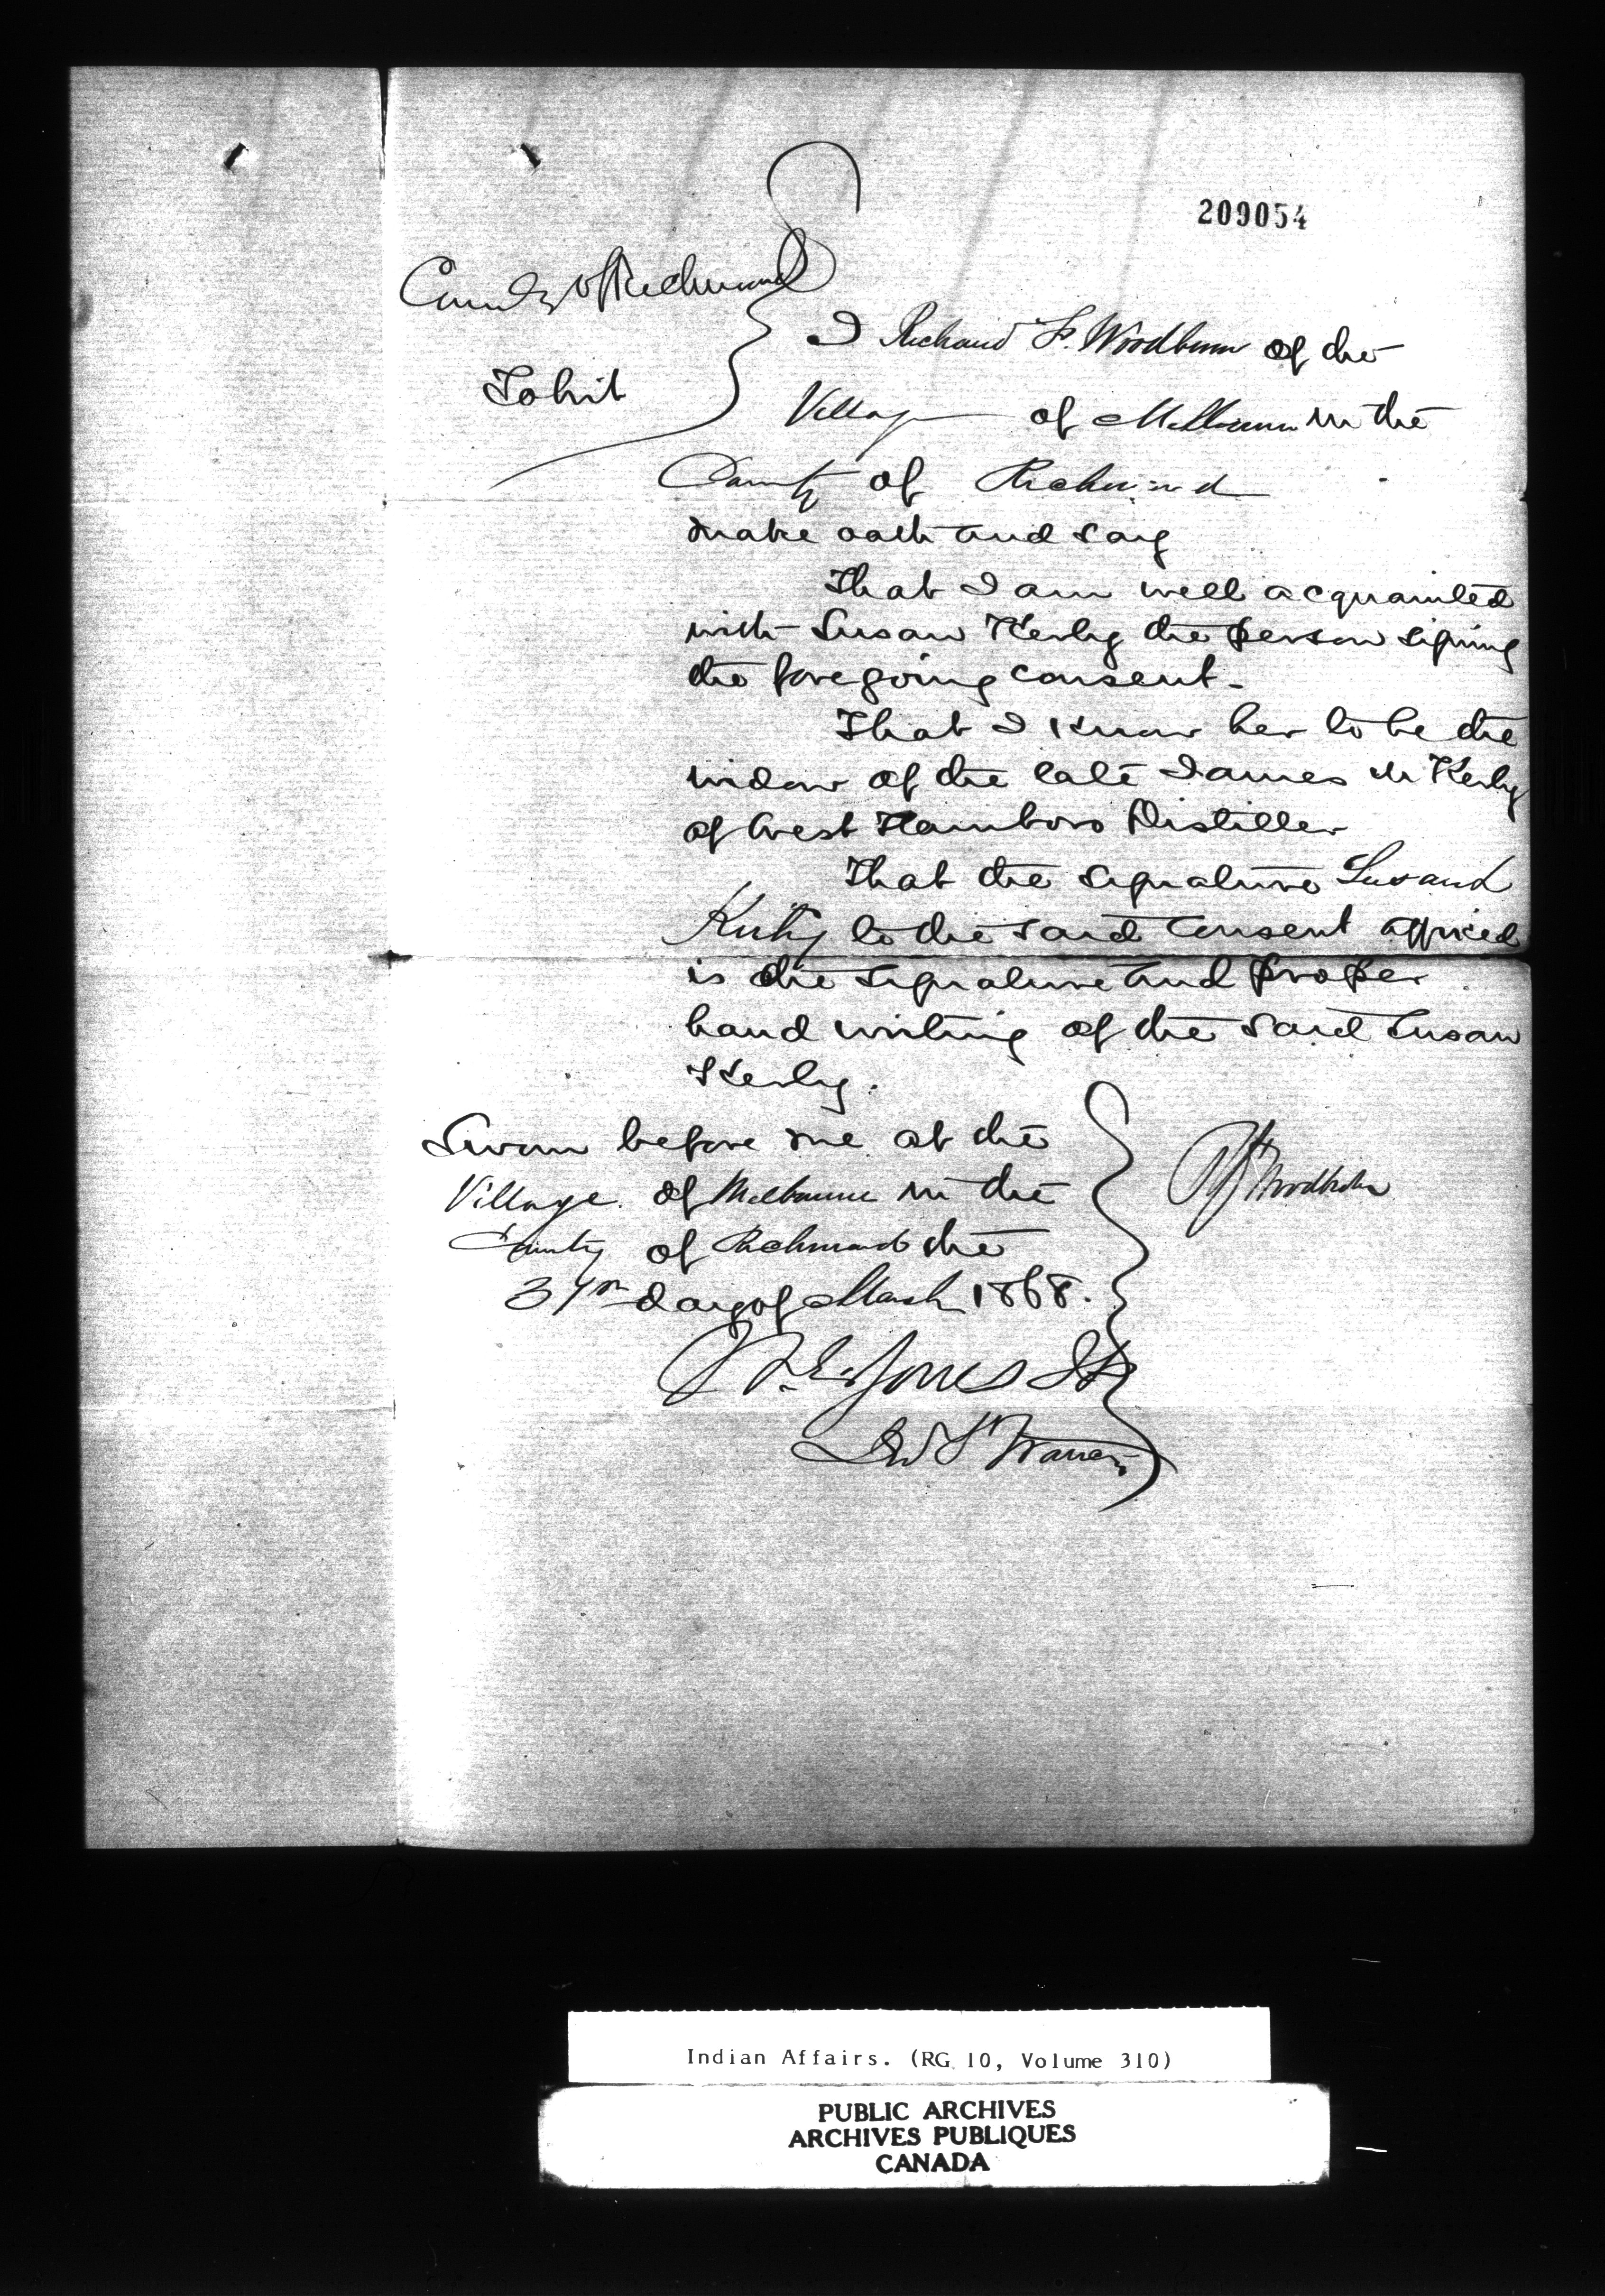 209054
County of Richmond
To Wit
I Richard F. Woodburn of the
Village of Melbourne in the
County of Richmond
make oath and say
That I am well acquainted
with Susan Kerby the person signing
the foregoing consent -
That I know her to be the
widow of the late James M Kerby
of West Flamboro Distiller
That the signature Susan
Kerby to the said consent affixed
is the signature and proper
hand writing of the said Susan
Kerby.
Sworn before me at the
Village of Melbourne in the
County of Richmond the
day of March 1868.
Jones
Indian Affairs. (RG 10, Volume 310)
PUBLIC ARCHIVES
ARCHIVES PUBLIQUES
CANADA